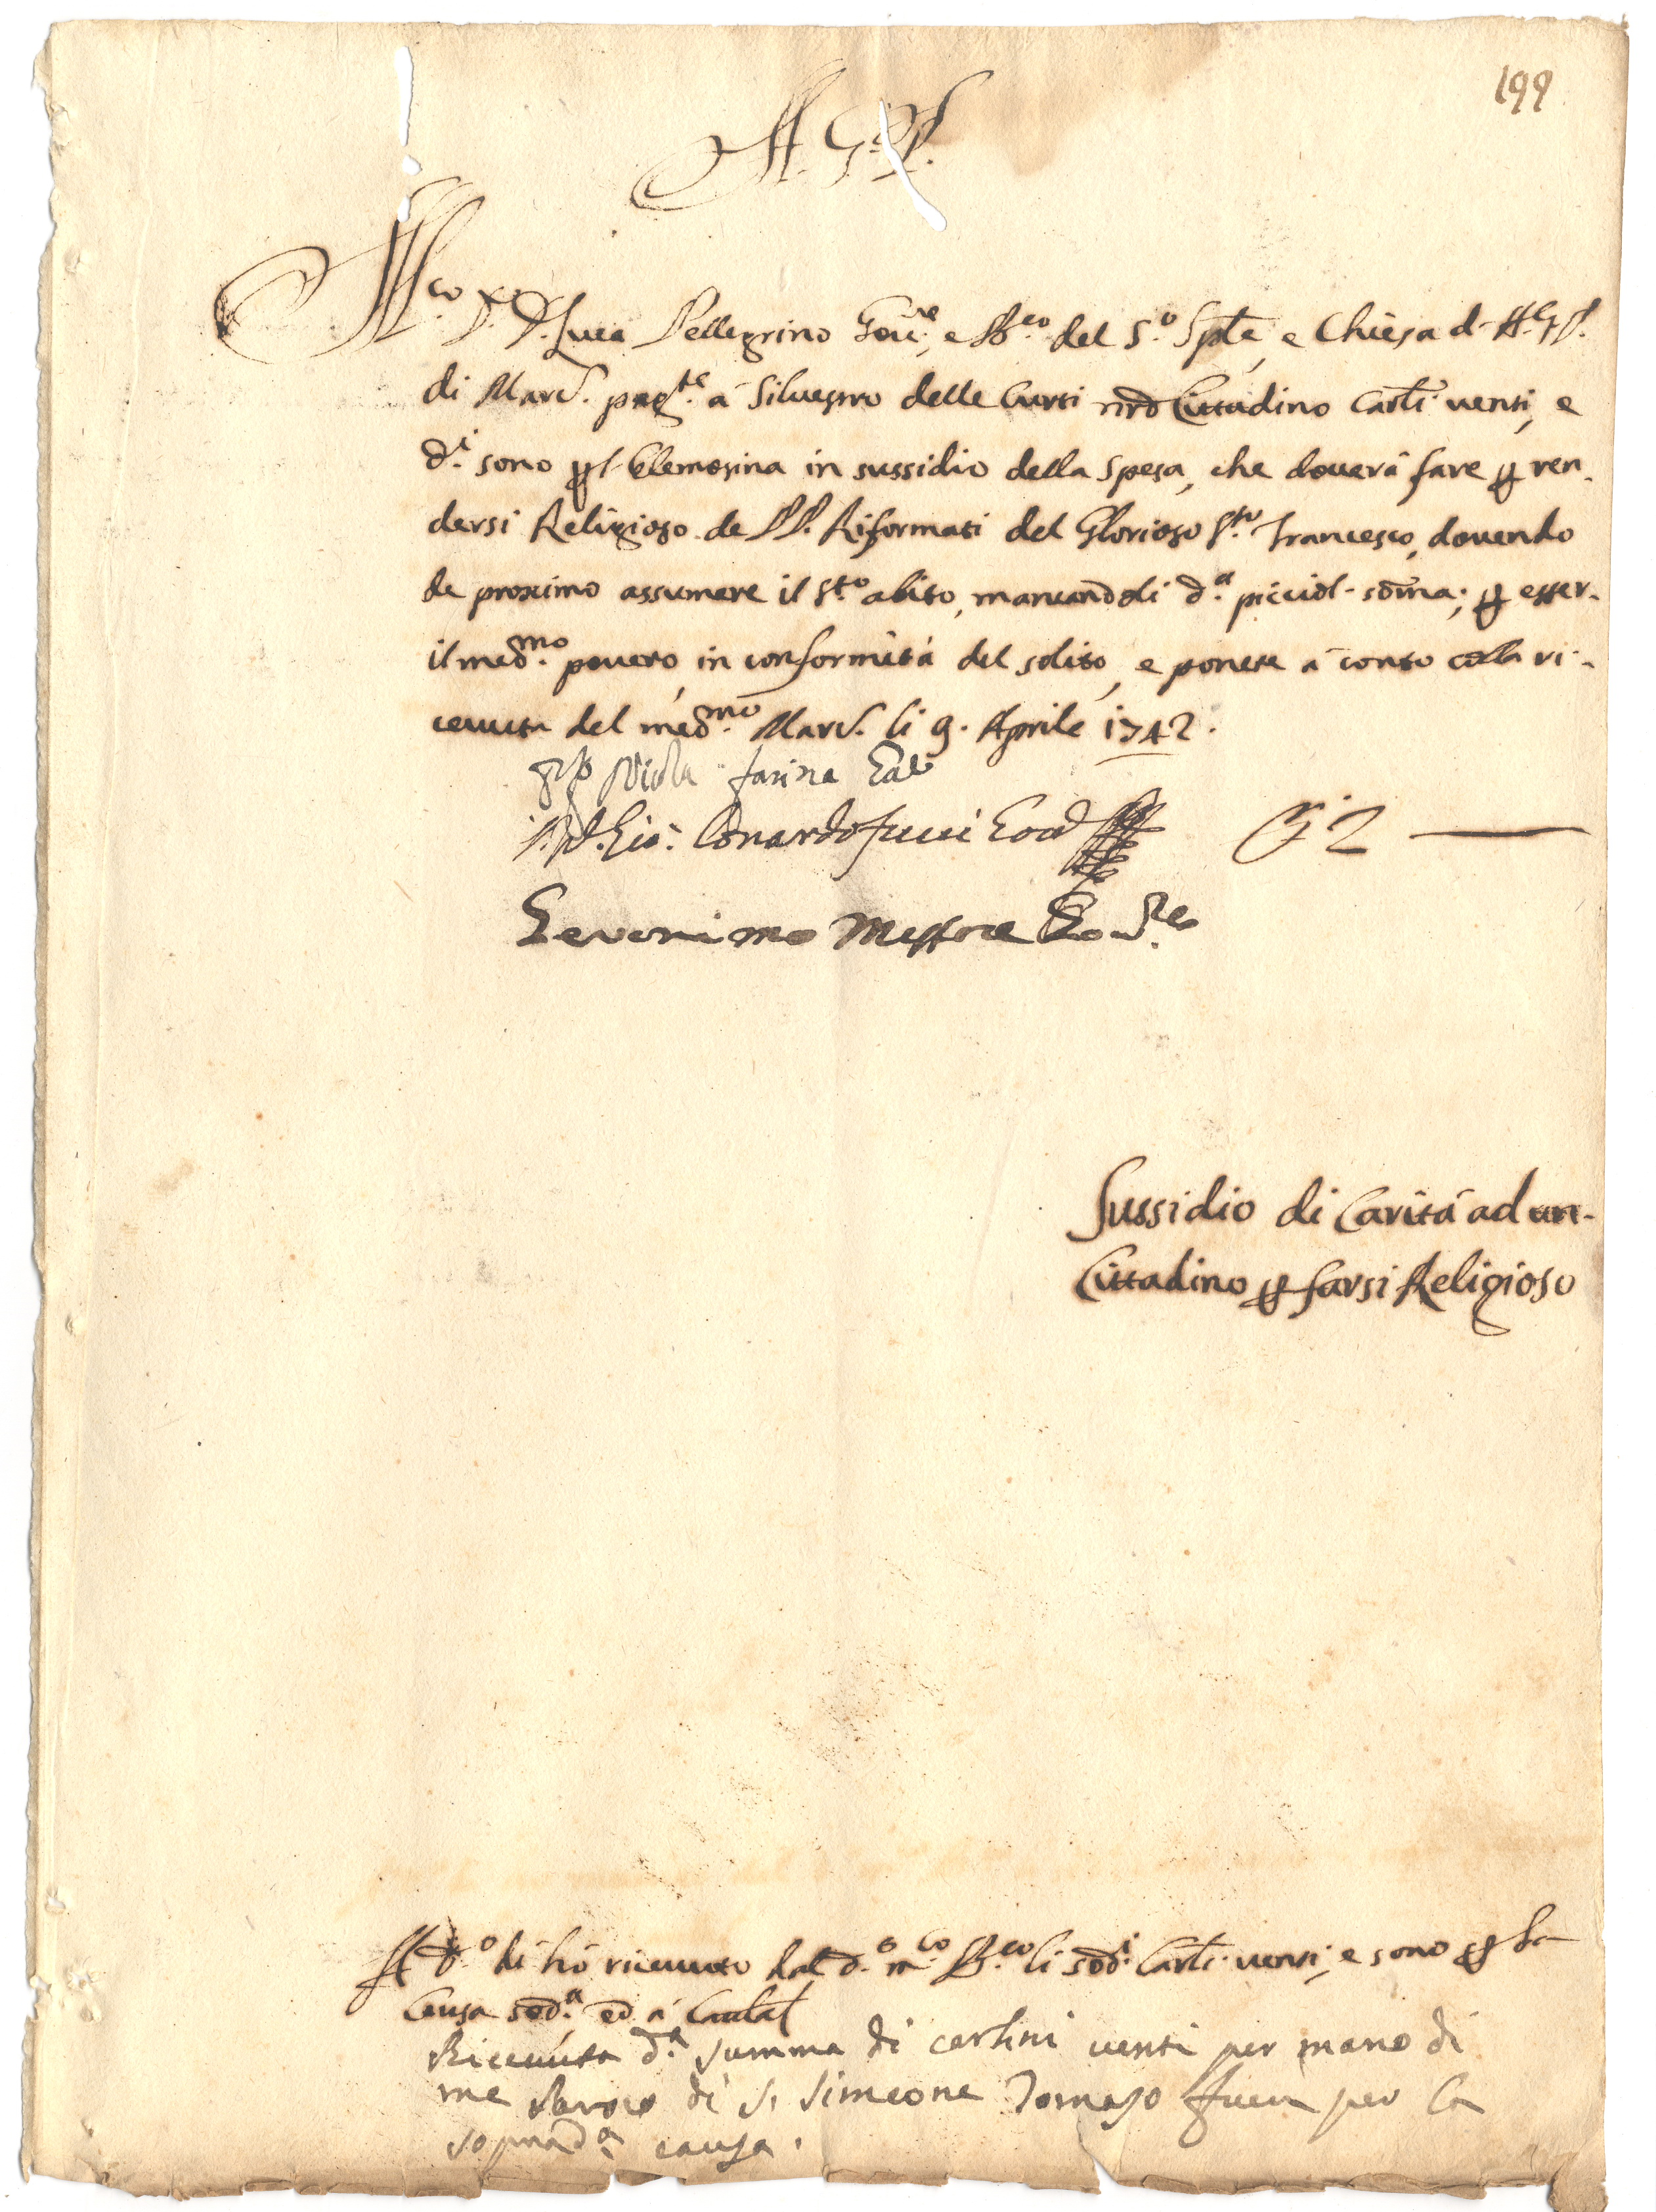 199
A. G. P.
M.co S.r D. Luca Pellegrino Gov.re, e B.co del S.o Sple, e Chiesa d. A. G. P.
di Marc. pag.te á Silvestro delle Curti nrõ Cittadino Carli venti, e
d.i sono p l'elemosina in sussidio della Spesa, che doverá fare p ren-
dersi Religioso de PP. Riformati del Glorioso S.to Francesco, dovendo
de proximo assumere il S.to abito, mancandoli d.a picciol. soma; p esser-
il med.mo povero, in conformitá del solito, e ponete á conto colla ri-
cevuta del med.mo Marc. li 9. Aprile 1742.
Viola farina
D. Gio: Lonardo fucci
2 —
Geronimo Messore
Sussidio di Caritá ad un-
Cittadino p farsi Religioso
A d.o dí hó ricevuto dal d.o m.co B.co li sod.i Carli venti, e sono p la
Causa sod.a ed á Cautel
Ricevuta d.a summa di carlini venti per mano di
me Paroco di S. Simeone Tomaso fucci per la
soprad.a causa.